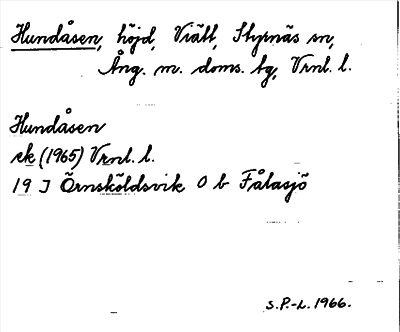 Hundåsen, höjd, Viätt, Styrnäs sn,
Ång. m. doms. tg, Vrnl. l.
Hundåsen
ek (1965) Vrnl. l.
19 J Örnsköldsvik 0 b Fålasjö
S.P.-L. 1966.